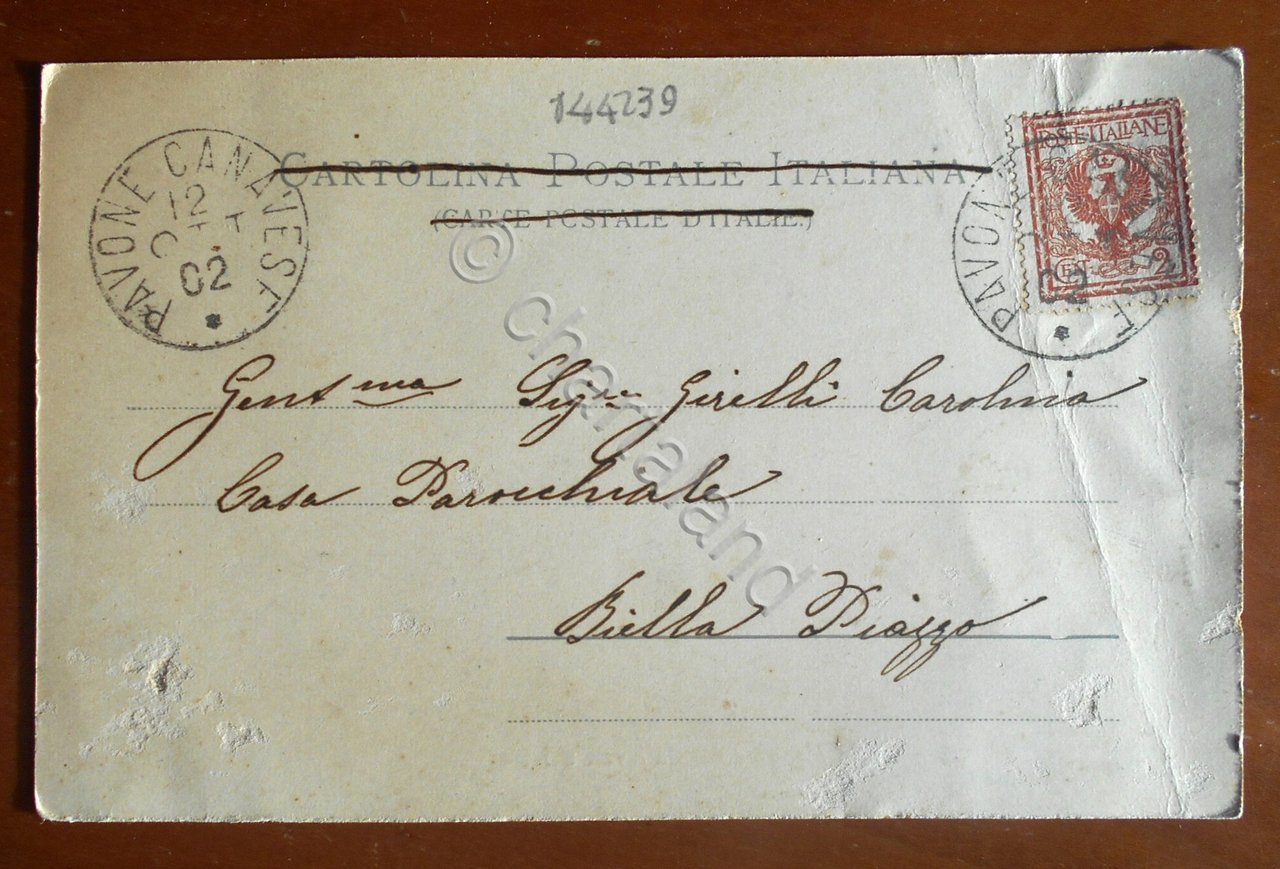 144239
CARTOLINA POSTALE ITALIANA
(CARTE POSTALE D'ITALIE.)
PAVONE CANAVESE
12
02
POSTE ITALIANE
CENT. 2
PAVONE
02
Gent.ma Sig.ra Girelli Carolina
Casa Parocchiale
Biella Piazzo
© chamaland